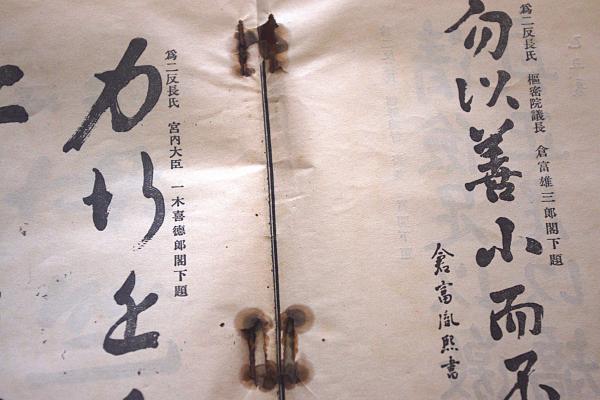 爲二反長氏 樞密院議長 倉富雄三郎閣下題
勿以善小而不
倉富胤煕書
爲二反長氏 宮內大臣 一木喜德郎閣下題
力行近